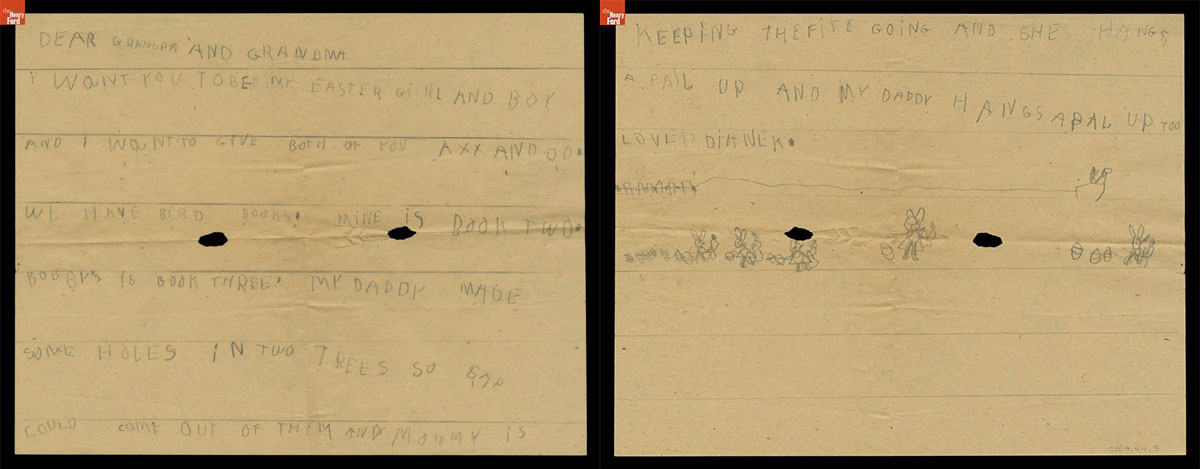 the
Henry
Ford
DEAR GRANDPA AND GRANDMA
I WANT YOU TO BE MY EASTER GIRL AND BOY
AND I WANT TO GIVE BOTH OF YOU A XX AND OO.
WE HAVE BIRD BOOKS. MINE IS BOOK TWO.
BOBBYS IS BOOK THREE. MY DADDY MADE
SOME HOLES IN TWO TREES SO
COULD COME OUT OF THEM AND MOMMY IS
the
Henry
Ford
KEEPING THE FIRE GOING AND SHE HANGS
A PAIL UP AND MY DADDY HANGS A PAL UP TOO
LOVED DIANEK.